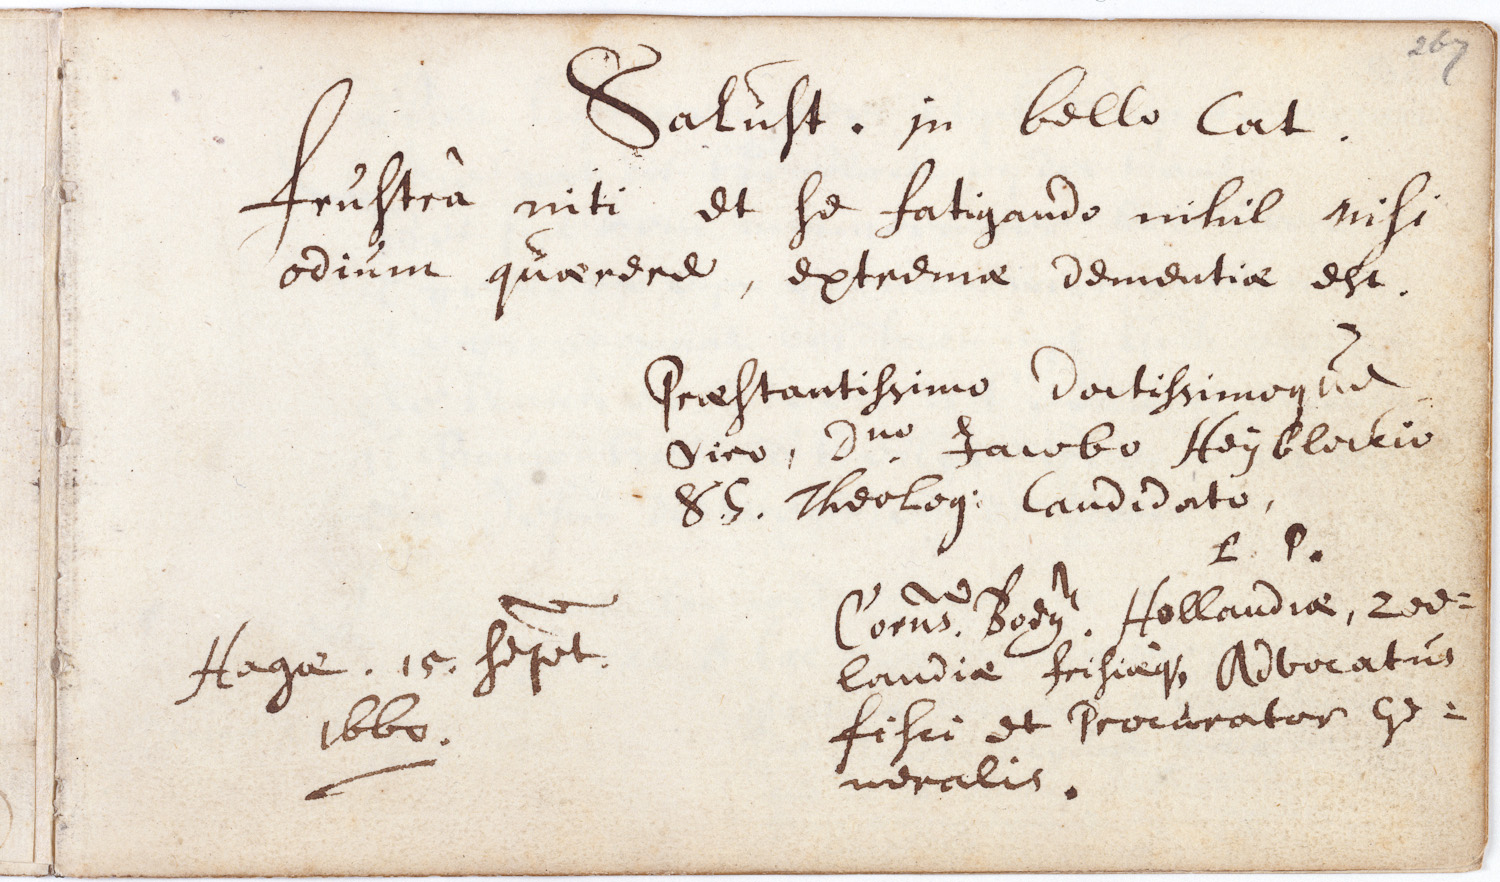 267
Salust. in bello Cat.
frustrà niti et se fatigando nihil nisi
odium quærere, extremæ dementiæ est.
Præstantissimo doctissimoque
viro, Dno. Jacobo Heyblockio
SS. Theolog: Candidato,
L. P.
Corns. Body. Hollandiæ, Zee=
landiæ frisiæq, Advocatus
fisci et Procurator Ge=
neralis.
Hagæ. 15. Sept.
1660.